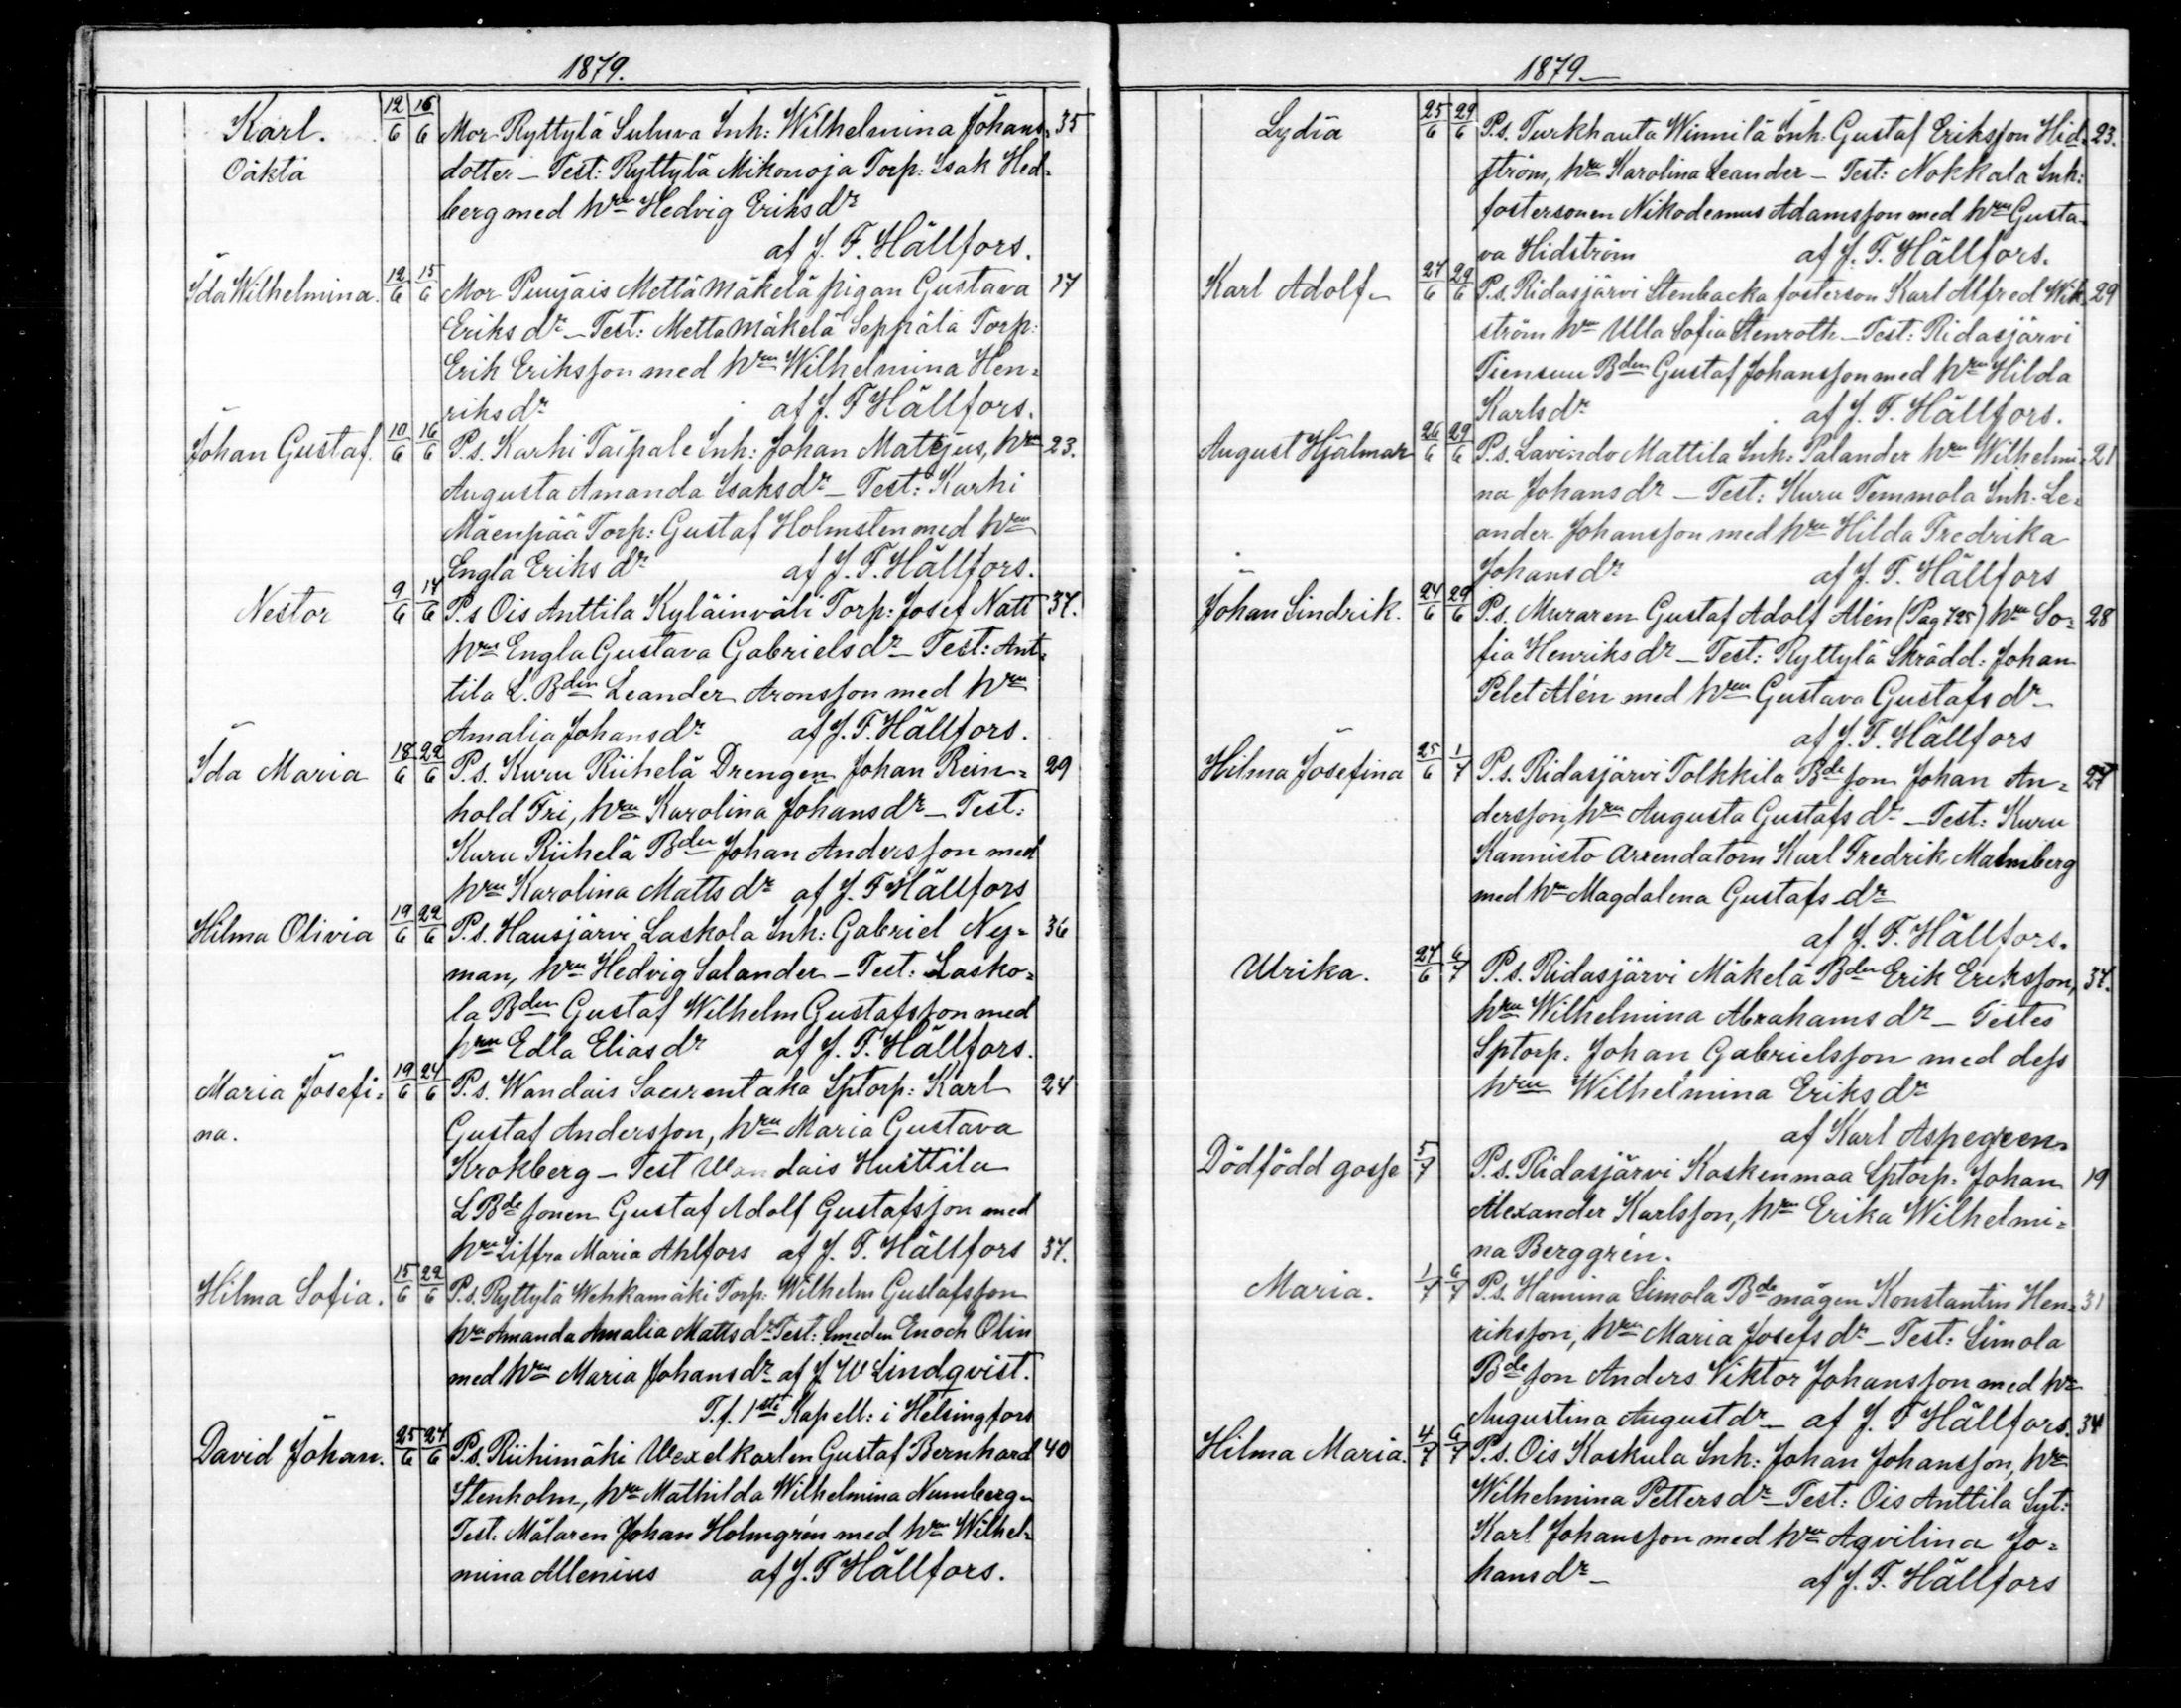 1879.
Karl. 12/6 16/6 Mor Ryttylä Suluva Inh: Wilhelmina Johans= 35
Oäkta dotter – Test: Ryttylä Mikonoja Torp: Isak Hed=
berg med hru Hedvig Eriksdr
af J. F. Hällfors.
Ida Wilhelmina. 12/6 15/6 Mor Puujais Mettämäkelä pigan Gustava 17
Eriksdr – Test: Mettämäkelä Seppälä Torp:
Erik Eriksson med hru Wilhelmina Hen=
riksdr af J. F Hällfors.
Johan Gustaf. 10/6 16/6 P.s. Karhi Taipale Inh: Johan Matejus, hru 23.
Augusta Amanda Isaksdr – Test: Karhi
Mäenpää Torp: Gustaf Holmsten med hru
Engla Eriksdr af J. F. Hällfors.
Nestor 9/6 14/6 P.s Ois Anttila Kyläinväli Torp: Josef Natt 37.
hru Engla Gustava Gabrielsdr – Test: Ant=
tila L. Bden Leander Aronsson med hru
Amalia Johansdr af J. F. Hällfors.
Ida Maria 18/6 22/6 P.s. Kuru Riihelä Drengen Johan Rein= 29
hold Fri, hru Karolina Johansdr – Test:
Kuru Riihelä Bden Johan Andersson med
hru Karolina Mattsdr af J. F Hällfors
Hilma Olivia 19/6 22/6 P.s. Hausjärvi Laskola Inh: Gabriel Ny= 36
man, hru Hedvig Salander – Test: Lasko=
la Bden Gustaf Wilhelm Gustafsson med
hru Edla Eliasdr af J. F. Hällfors.
Maria Josefi= 19/6 24/6 P.s. Wandais Saarentaka Sptorp: Karl 24
na. Gustaf Andersson, hru Maria Gustava
Krokberg – Test Wandais Huittila
L Bde sonen Gustaf Adolf Gustafsson med
hru Ziffra Maria Ahlfors af J. F. Hällfors 37.
Hilma Sofia. 15/6 22/6 P.s. Ryttylä Wehkamäki Torp: Wilhelm Gustafsson
hru Amanda Amalia Mattsdr Test: Smeden Enoch Olin
med hru Maria Johansdr af J. W Lindqvist.
T.f. 1sti Kapell: i Helsingfors
David Johan. 25/6 27/6 P.s. Riihimäki Wexelkarlen Gustaf Bernhard 40
Stenholm, hru Mathilda Wilhelmina Nummberg –
Test: Målaren Johan Holmgrén med hru Wilhel=
mina Allenius af J. F Hällfors.
1879 –
Lydia 25/6 29/6 P.s. Turkhauta Winnilä Inh: Gustaf Eriksson Hid= 23.
ström, hru Karolina Leander – Test: Nokkala Inh:
fostersonen Nikodemus Adamsson med hru Gusta=
va Hidström af J. F. Hällfors.
Karl Adolf – 27/6 29/6 P.s. Ridasjärvi Stenbacka fosterson Karl Alfred Wik= 29
ström hru Ulla Sofia Stenroth – Test: Ridasjärvi
Tiensuu Bden Gustaf Johansson med hru Hilda
Karlsdr af J. F. Hällfors.
August Hjalmar 26/6 29/6 P.s. Lavindo Mattila Inh: Palander hru Wilhelmi= 21
na Johansdr – Test: Kuru Temmola Inh. Le=
ander Johansson med hru Hilda Fredrika
Johansdr af J. F. Hällfors
Johan Sindrik. 24/6 29/6 P.s. Muraren Gustaf Adolf Alén (Pag 725) hru So= 28
fia Henriksdr – Test: Ryttylä Skrädd: Johan
Pelet Alén med hru Gustava Gustafsdr –
af J. F. Hällfors
Hilma Josefina 25/6 1/7 P.s. Ridasjärvi Tolkkila Bde son Johan An= 27
dersson, hru Augusta Gustafsdr – Test: Kuru
Kannisto Arrendatorn Karl Fredrik Malmberg
med hru Magdalena Gustafsdr
af J. F. Hällfors.
Ulrika. 27/6 6/7 P.s. Ridasjärvi Mäkelä Bden Erik Eriksson, 37.
hru Wilhelmina Abrahamsdr – Testes
Sptorp: Johan Gabrielsson med dess
hru Wilhelmina Eriksdr
af Karl Aspegren
Dödfödd gosse 5/7 P.s. Ridasjärvi Koskenmaa Sptorp: Johan 19
Alexander Karlsson, hru Erika Wilhelmi=
na Berggrén.
Maria. 1/7 6/7 P.s. Hamina Simola Bde mågen Konstantin Hen= 31
riksson, hru Maria Josefsdr – Test: Simola
Bde son Anders Viktor Johansson med hru
Augustina Augustdr – af J. F Hällfors. 34
Hilma Maria. 4/7 6/7 P.s. Ois Koskula Inh: Johan Johansson, hru
Wilhelmina Pettersdr – Test: Ois Anttila Syt:
Karl Johansson med hru Aqvilina Jo=
hansdr – af J. F. Hällfors